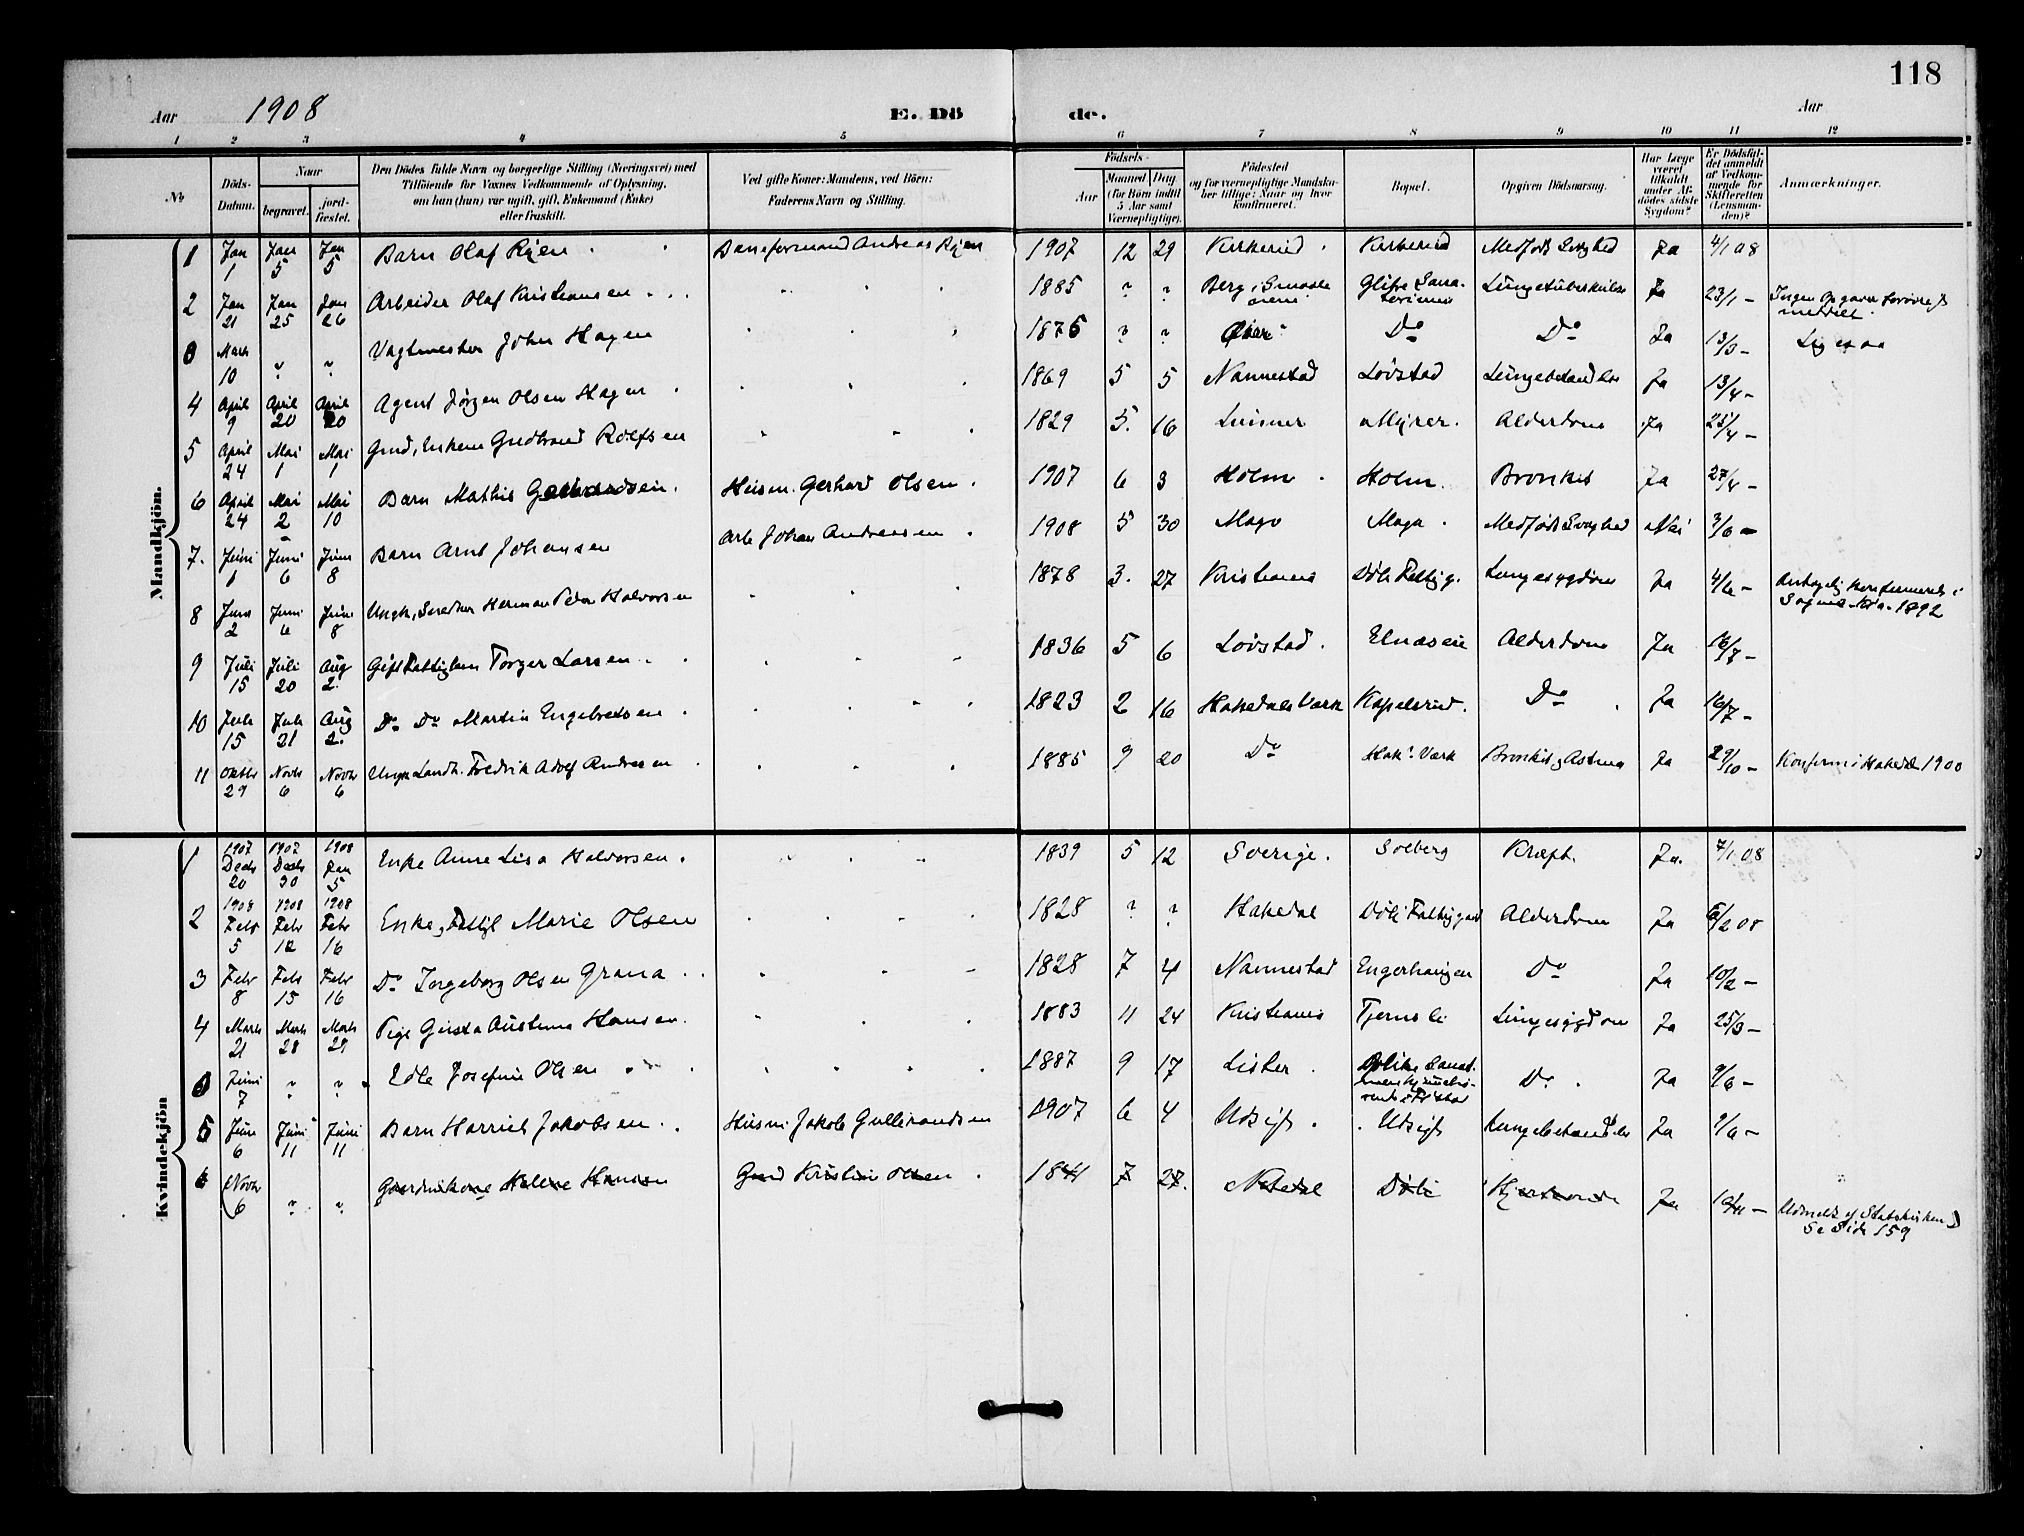 118
Aar 1908 E. Dö de. Aar
1 2 3 4 5 6 7 8 9 10 11 12
No
Döds-Datum.
Naar
begravet.
jord-fæstet.
Den Dödes fulde Navn og borgerlige Stilling (Næringsvei) med
Tilföiende for Voxnes Vedkommende af Oplysning,
om han (hun) var ugift, gift, Enkemand (Enke)
eller fraskilt.
Ved gifte Koner: Mandens, ved Börn:
Faderens Navn og Stilling.
Födsels-
Aar
Maaned Dag
(for Börn indtil
5 Aar samt
Værnepligtige).
Födested
og for værnepligtige Mandska-
ber tillige: Naar og hvor
konfirmeret.
Bopæl.
Opgiven Dödsaarsag.
Har Læge
været
tilkaldt
under Af-
dödes sidste
Sygdom?
Er Dödsfal-
det anmeldt
af Vedkom-
mende for
Skifteretten
(Lensman-
den)?
Anmærkninger.
Mandkjön.
1 Jan 1 Jan 5 Jan 5 Barn Olaf Ryen Baneformand Andreas Ryen 1907 12 29 Kirkerud Kirkerud Medfødt Svaghed Ja 4/1 08
2 Jan 21 Jan 25 Jan 26 Arbeider Olaf Kristiansen 1885 ? ? Berg i Smaale nene Glitre Sana torium Lungetuberkulose Ja 23/1 – Ingen Opgave
0 Marts 10 " " Vagtmester John Hagen 1876 ? ? Øier Do Do Ja 13/3 – Ligesaa
4 April 9 April 20 April 20 Agent Jørgen Olsen Hagen 1869 5 5 Nannestad Løvstad Lungebetændelse Ja 13/4 –
5 April 24 Mai 1 Mai 1 Gmd, Enkem Gudbrand Rolfsen 1829 5 16 Lunner Myrer Alderdom Ja 25/4 –
6 April 24 Mai 2 Mai 10 Barn Mathis Husm. Gerhard Olsen 1907 6 3 Holm Holm Bronkit Ja 27/4 –
7. Juni 1 Juni 6 Juni 8 Barn Arnt Johansen Arb Johan Andreasen 1908 5 30 Mago Mago Medfødt Svaghed Nei 3/6 –
8 Juni 2 Juni 6 Juni 8 Ungk, Herman Peder Halvorsen 1878 3. 27 Kristiania Døli Fattigg. Lungesygdom Ja 4/6 – Antagelig konfirmeret i
Kra. 1892
9 Juli 15 Juli 20 Aug 2 Gift Fattiglem Torger Larsen 1836 5 6 Løvstad Elnæseie Alderdom Ja 16/7 –
10 Juli 15 Juli 21 Aug 2. Do Do Martin Engebretsen 1823 2 16 Hakedals Værk Kapelsrud Do Ja 16/7 –
11 Oktbr 29 Novbr 6 Novbr 6 Ungk Landh. Fredrik Adolf Andresen 1885 9 20 Do Hak. Værk Bronkit, Astma Ja 29/10 – Konfirm i Hakedal 1900
Kvindekjön
1 1907 Decbr 20 1907 Decbr 30 1908 Jan 5 Enke Anne Lisa Halvorsen 1839 5 12 Sverige Solberg Kræft Ja. 7/1 08
2 1908 Febr 5 1908 Febr 12 1908 Febr 16 Enke, Fattigl Marie Olsen 1828 ? ? Hakedal Døli Fattiggaard Alderdom Ja 6/2 08
3 Febr 8 Febr 15 Febr 16 Do Ingeborg Olsen Grana 1828 7 4 Nannestad Engerhaugen Do Ja 10/2 –
4 Marts 21 Marts 28 Marts 29 Pige Gusta Hansen 1883 11 24 Kristiania Tjernsli Lungesygdom Ja 25/3 –
0 Juni 7 " " Edle Josefine Olsen 1887 9 17 Lister Do Ja 9/6 –
5 Juni 6 Juni 11 Juni 11 Barn Harriet Jakobsen Husm Jakob Gulbrandsen 1907 6 4 Udsigt Udsigt Lungebetændelse Ja 9/6 –
6 (Novbr 6 " " Gaardmikone Helene Hansen Gmd Kristian Olsen 1841 7 27. Døli Ja 10/11 – Udmeldt af Statskirken)
Se Side 159